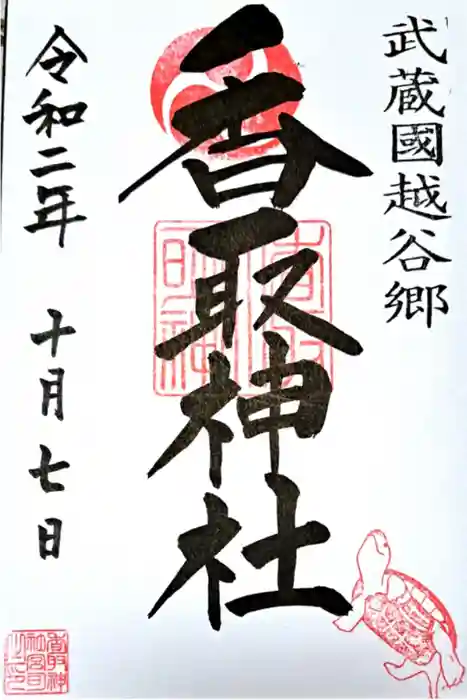 武蔵國越谷郷
香取神社
令和二年 十月七日